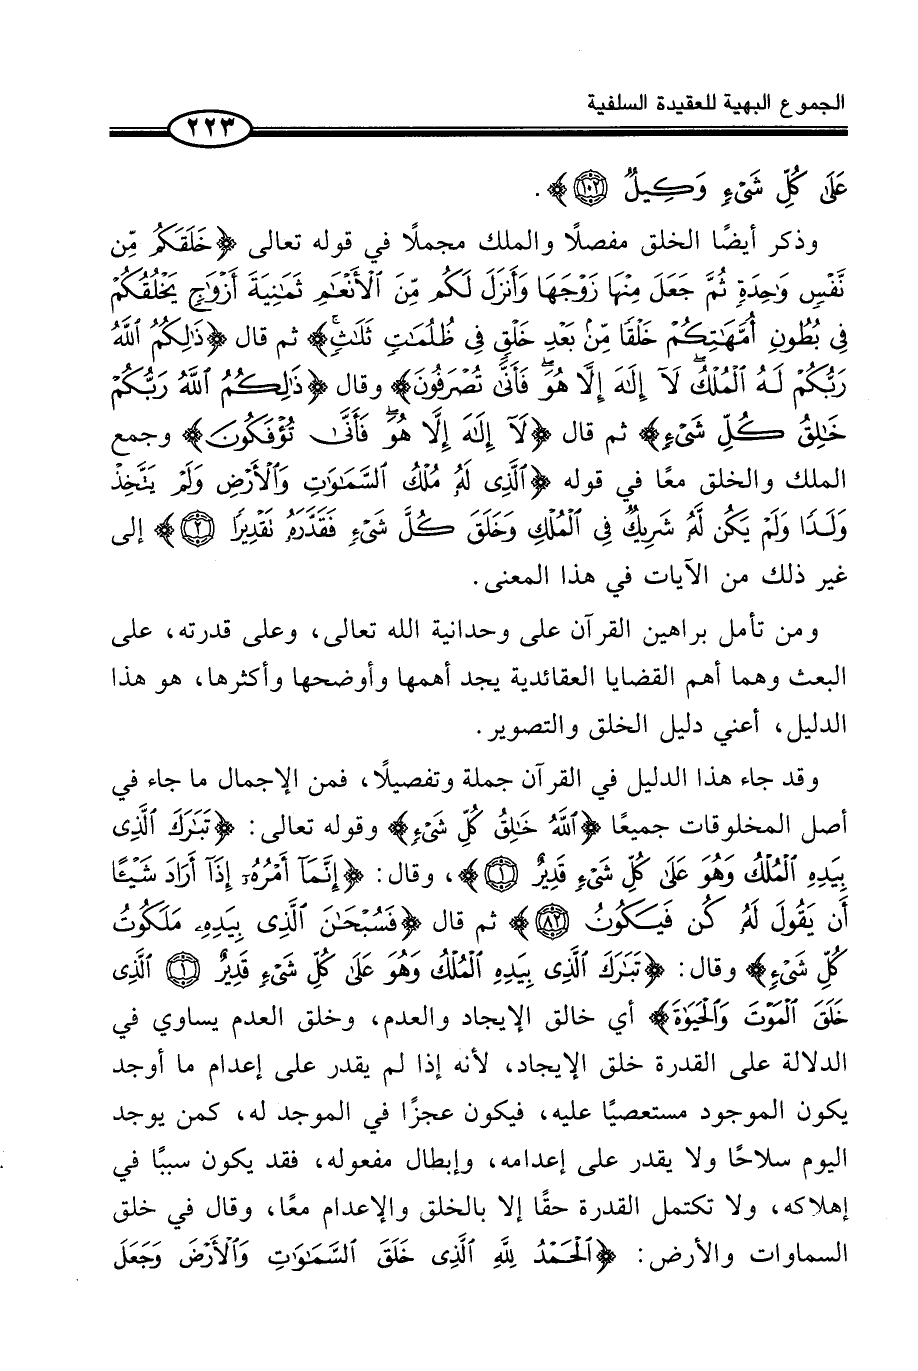 الجموع البهية للعقيدة السلفية
٢٢٣
عَلَىٰ كُلِّ شَىْءٍ وَكِيلٌ ﴿١٠٢﴾ ﴾ .
وذكر أيضًا الخلق مفصلًا والملك مجملًا في قوله تعالى ﴿خَلَقَكُم مِّن
نَّفْسٍ وَٰحِدَةٍ ثُمَّ جَعَلَ مِنْهَا زَوْجَهَا وَأَنزَلَ لَكُم مِّنَ ٱلْأَنْعَٰمِ ثَمَٰنِيَةَ أَزْوَٰجٍ يَخْلُقُكُمْ
فِى بُطُونِ أُمَّهَٰتِكُمْ خَلْقًا مِّنۢ بَعْدِ خَلْقٍ فِى ظُلُمَٰتٍ ثَلَٰثٍ﴾ ثم قال ﴿ذَٰلِكُمُ ٱللَّهُ
رَبُّكُمْ لَهُ ٱلْمُلْكُ لَآ إِلَٰهَ إِلَّا هُوَ فَأَنَّىٰ تُصْرَفُونَ﴾ وقال ﴿ذَٰلِكُمُ ٱللَّهُ رَبُّكُمْ
خَٰلِقُ كُلِّ شَىْءٍ﴾ ثم قال ﴿لَآ إِلَٰهَ إِلَّا هُوَ فَأَنَّىٰ تُؤْفَكُونَ﴾ وجمع
الملك والخلق معًا في قوله ﴿ٱلَّذِى لَهُۥ مُلْكُ ٱلسَّمَٰوَٰتِ وَٱلْأَرْضِ وَلَمْ يَتَّخِذْ
وَلَدًا وَلَمْ يَكُن لَّهُۥ شَرِيكٌ فِى ٱلْمُلْكِ وَخَلَقَ كُلَّ شَىْءٍ فَقَدَّرَهُۥ تَقْدِيرًا ﴿٢﴾ ﴾ إلى
غير ذلك من الآيات في هذا المعنى.
ومن تأمل براهين القرآن على وحدانية الله تعالى، وعلى قدرته، على
البعث وهما أهم القضايا العقائدية يجد أهمها وأوضحها وأكثرها، هو هذا
الدليل، أعني دليل الخلق والتصوير.
وقد جاء هذا الدليل في القرآن جملة وتفصيلًا، فمن الإجمال ما جاء في
أصل المخلوقات جميعًا ﴿ٱللَّهُ خَٰلِقُ كُلِّ شَىْءٍ﴾ وقوله تعالى: ﴿تَبَٰرَكَ ٱلَّذِى
بِيَدِهِ ٱلْمُلْكُ وَهُوَ عَلَىٰ كُلِّ شَىْءٍ قَدِيرٌ ﴿١﴾ ﴾، وقال: ﴿إِنَّمَآ أَمْرُهُۥٓ إِذَآ أَرَادَ شَيْـًٔا
أَن يَقُولَ لَهُۥ كُن فَيَكُونُ ﴿٨٢﴾ ﴾ ثم قال ﴿فَسُبْحَٰنَ ٱلَّذِى بِيَدِهِۦ مَلَكُوتُ
كُلِّ شَىْءٍ﴾ وقال: ﴿تَبَٰرَكَ ٱلَّذِى بِيَدِهِ ٱلْمُلْكُ وَهُوَ عَلَىٰ كُلِّ شَىْءٍ قَدِيرٌ ﴿١﴾ ٱلَّذِى
خَلَقَ ٱلْمَوْتَ وَٱلْحَيَوٰةَ﴾ أي خالق الإيجاد والعدم، وخلق العدم يساوي في
الدلالة على القدرة خلق الإيجاد، لأنه إذا لم يقدر على إعدام ما أوجد
يكون الموجود مستعصيًا عليه، فيكون عجزًا في الموجد له، كمن يوجد
اليوم سلاحًا ولا يقدر على إعدامه، وإبطال مفعوله، فقد يكون سببًا في
إهلاكه، ولا تكتمل القدرة حقًا إلا بالخلق والإعدام معًا، وقال في خلق
السماوات والأرض: ﴿ٱلْحَمْدُ لِلَّهِ ٱلَّذِى خَلَقَ ٱلسَّمَٰوَٰتِ وَٱلْأَرْضَ وَجَعَلَ